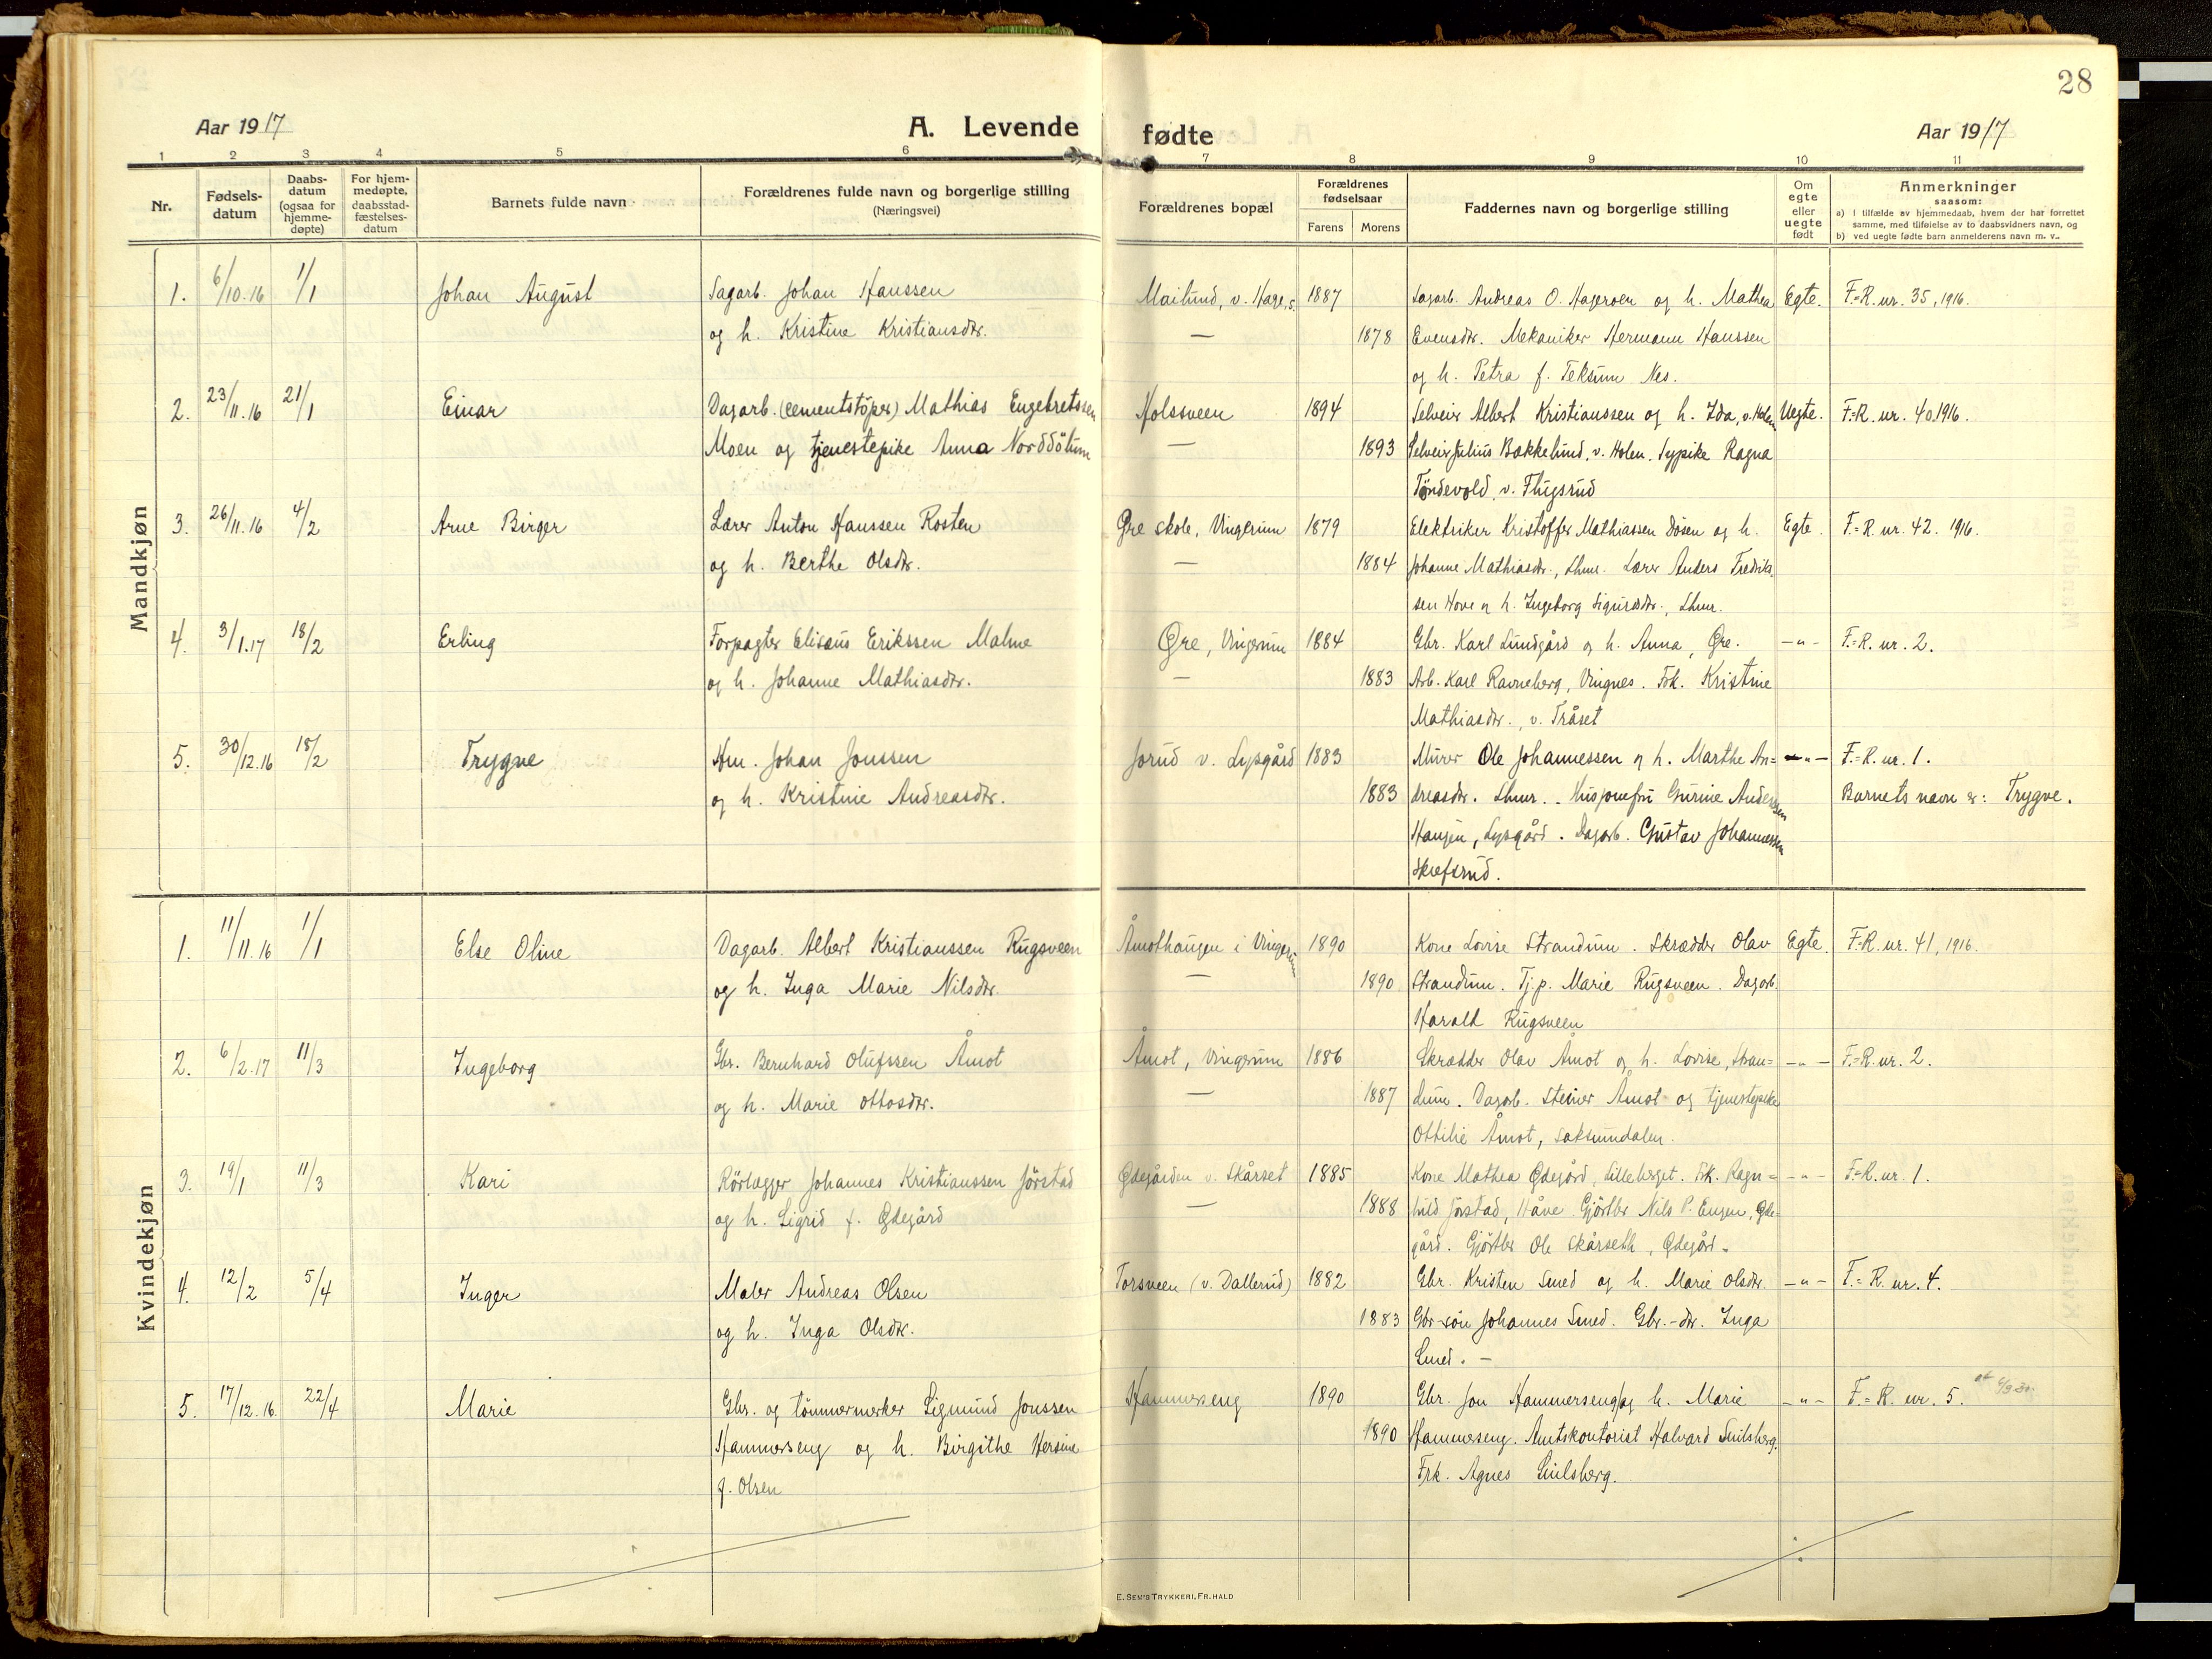 28
Aar 1917
A. Levende fødte
Aar 1917
1 2 3 4 5 6 7 8 9 10 11
Nr.
Fødsels-
datum
Daabs-
datum
(ogsaa for
hjemme-
døpte)
For hjem-
medøpte,
daabsstad-
fæstelses-
datum
Barnets fulde navn
Forældrenes fulde navn og borgerlige stilling
(Næringsvei)
Forældrenes bopæl
Forældrenes
fødselsaar
Farens Morens
Faddernes navn og borgerlige stilling
Om
egte
eller
uegte
født
Anmerkninger
saasom:
a) i tilfælde av hjemmedaab, hvem der har forrettet
samme, med tilføielse av to daabsvidners navn, og
b) ved uegte fødte barn anmelderens navn m. v..
Mandkjøn
1. 6/10.16 1/1 Johan August Sagarb. Johan Hanssen Mailund, v. Hage, s. 1887 Sagarb. Andreas O. Hageroen og h. Mathea Egte. F.=R. nr. 35, 1916.
og h. Kristine Kristiansdtr. — 1878 Evensdtr. Mekaniker Hermann Hanssen
og h. Petra f. Teksum Nes.
2. 23/11.16 21/1 Einar Dagarb. (cementstøper) Mathias Engebretssen Holssveen 1894 Selveier Albert Kristianssen og h. Ida, v. Holen Uegte. F.=R. nr. 40.1916.
Moen og tjenestepike Anna Norddölum — 1893 Selveier Julius Bakkelund, v. Holen. Sypike Ragna
Töndevold, v. Flugsrud
3. 26/11.16 4/2 Arne Birger Lærer Anton Hanssen Rosten Øre skole, Vingrom 1879 Elektriker Kristoffer Mathiassen Dösen og h. Egte. F.=R. nr. 42. 1916.
og h. Berthe Olsdtr. — 1884 Johanne Mathiasdtr., Lhmr. Lærer Anders Fredrik-
sen Hove og h. Ingeborg Sigurdsdtr., Lhmr.
4. 3/1.17 18/2 Erling Forpagter Elisæus Erikssen Malme Øre, Vingrom 1884 Gbr. Karl Lundgård og h. Anna, Øre. —"— F.=R. nr. 2.
og h. Johanne Mathiasdtr. — 1883 Arb. Karl Ravneberg, Vingnes. Frk. Kristine
Mathiasdtr., v. Tråset
5. 30/12.16 18/2 Trygve Hm. Johan Jonssen Jorud v. Lysgård 1883 Murer Ole Johannessen og h. Marthe An= —"— F.=R. nr. 1.
og h. Kristine Andreasdtr. 1883 dreasdtr. Lhmr. Husjomfru Gurine Anderssen Barnets navn er: Trygve.
Haugen, Lysgård. Dagarb. Gustav Johannessen
Skefsrud.
Kvindekjøn
1. 11/11.16 1/1 Else Oline Dagarb. Albert Kristianssen Rugsveen Åmothaugen i Vingrom 1890 Kone Lovise Strandum. Skrædder Olav Egte. F.=R. nr. 41, 1916.
og h. Inga Marie Nilsdtr. — 1890 Strandum. Tj.p. Marie Rugsveen. Dagarb.
Harald Rugsveen
2. 6/2.17 11/3 Ingeborg Gbr. Bernhard Olufssen Åmot Åmot, Vingrom 1886 Skrædder Olav Åmot og h. Lovise, Stran= —"— F.=R. nr. 2.
og h. Marie Ottosdtr. — 1887 dum. Dagarb. Steiner Åmot og tjenestepike
Ottilie Åmot, Saksumdalen.
3. 19/1 11/3 Kari Rörlægger Johannes Kristianssen Jörstad Ødegården v. Skårset 1885 Kone Mathea Ødegård, Lilleberget. Frk. Ragn= —"— F.=R. nr. 1.
og h. Sigrid f. Ødegård — 1888 hild Jörstad, Håve. Gjörtler Nils P. Engen, Øde-
gård. Gjörtler Ole Skårseth, Ødegård.
4. 12/2 5/4 Inger Maler Andreas Olsen Torsveen (v. Dallerud) 1882 Gbr. Kristen Smed og h. Marie Olsdtr. —"— F.=R. nr. 4.
og h. Inga Olsdtr. 1883 Gbr-søn Johannes Smed. Gbr.-dtr. Inga
Smed. —
5. 17/12.16. 22/4 Marie Gbr. og tömmermerker Sigmund Jonssen Hammerseng 1890 Gbr. Jon Hammerseng og h. Marie —"— F.=R. nr. 5.
Hammerseng og h. Birgithe Hersine 1890 Hammerseng. Amtskontorist Halvard Smilsberg.
f. Olsen Frk. Agnes Smilsberg.
E. SEM'S TRYKKERI, FR.HALD